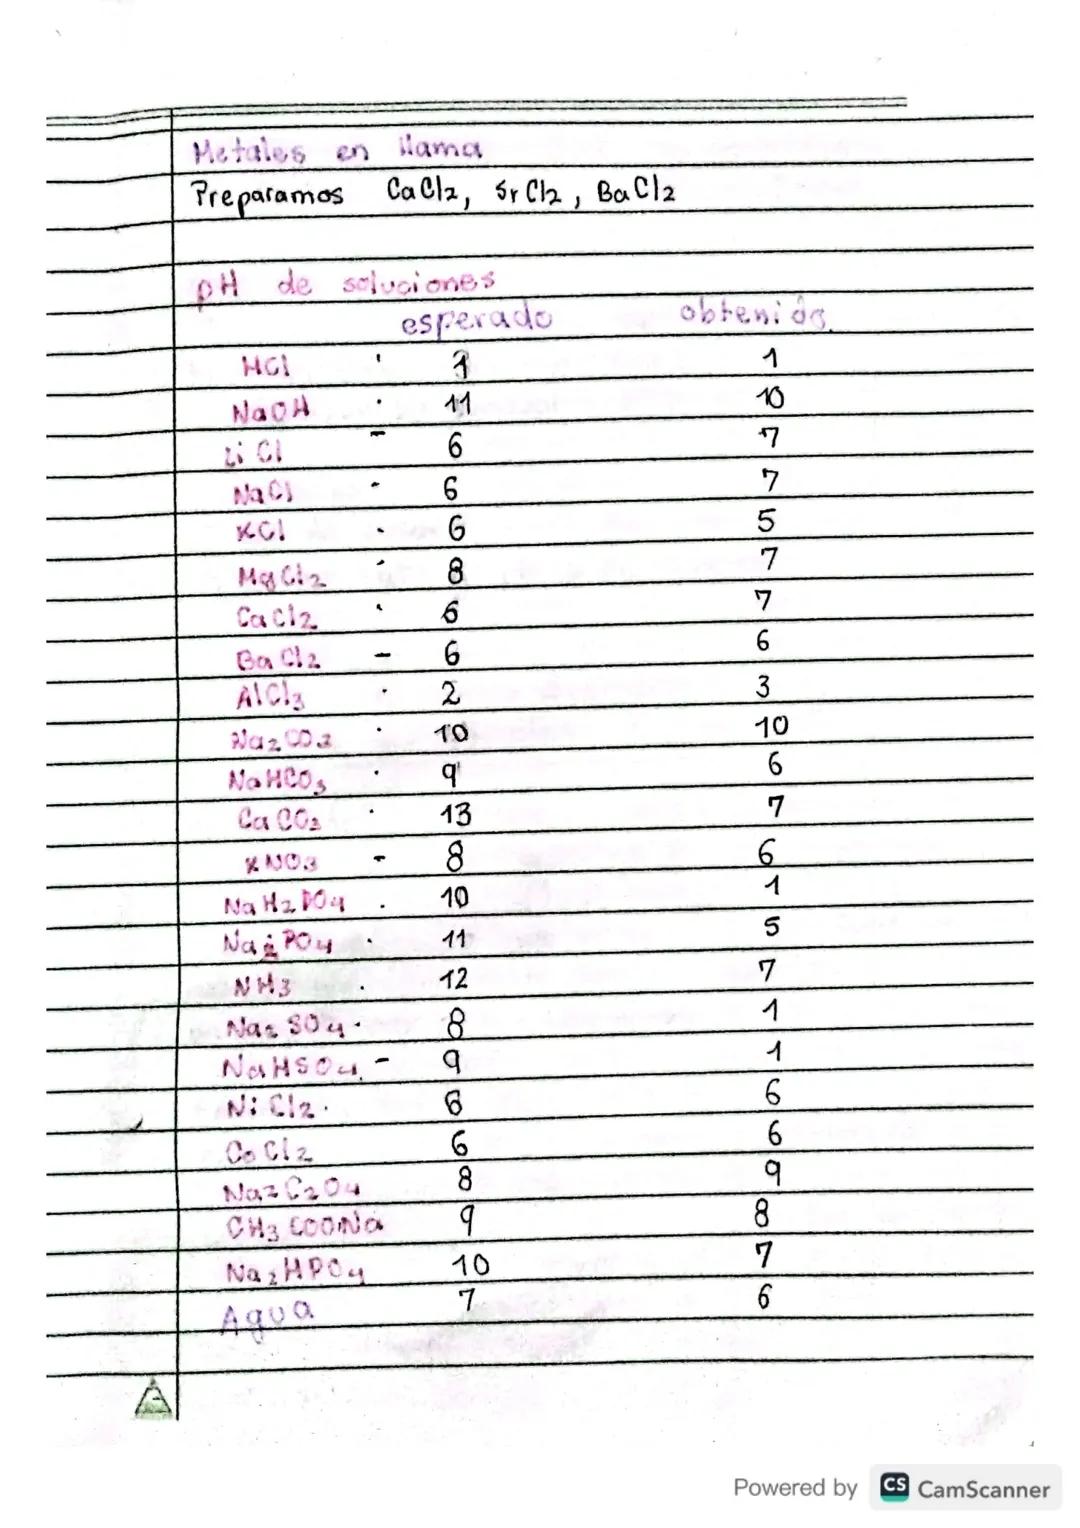 Metales en llama
Preparamos CaCl2, SrCl2, BaCl2
pH de soluciones
esperado obtenido
HCl : 1 1
NaOH : 11 10
Li Cl - 6 7
NaCl - 6 7
KCl . 6 5
MgCl2 : 8 7
CaCl2 . 6 7
BaCl2 - 6 6
AlCl3 . 2 3
Na2CO3 : 10 10
NaHCO3 . 9 6
CaCO3 . 13 7
KNO3 - 8 6
NaH2PO4 . 10 1
Na2PO4 . 11 5
NH3 . 12 7
Na2SO4 . 8 1
NaHSO4 - 9 1
NiCl2 . 6 6
CoCl2 6 6
Na2C2O4 8 9
CH3COONa 9 8
Na2HPO4 10 7
Agua 7 6
Powered by CS CamScanner